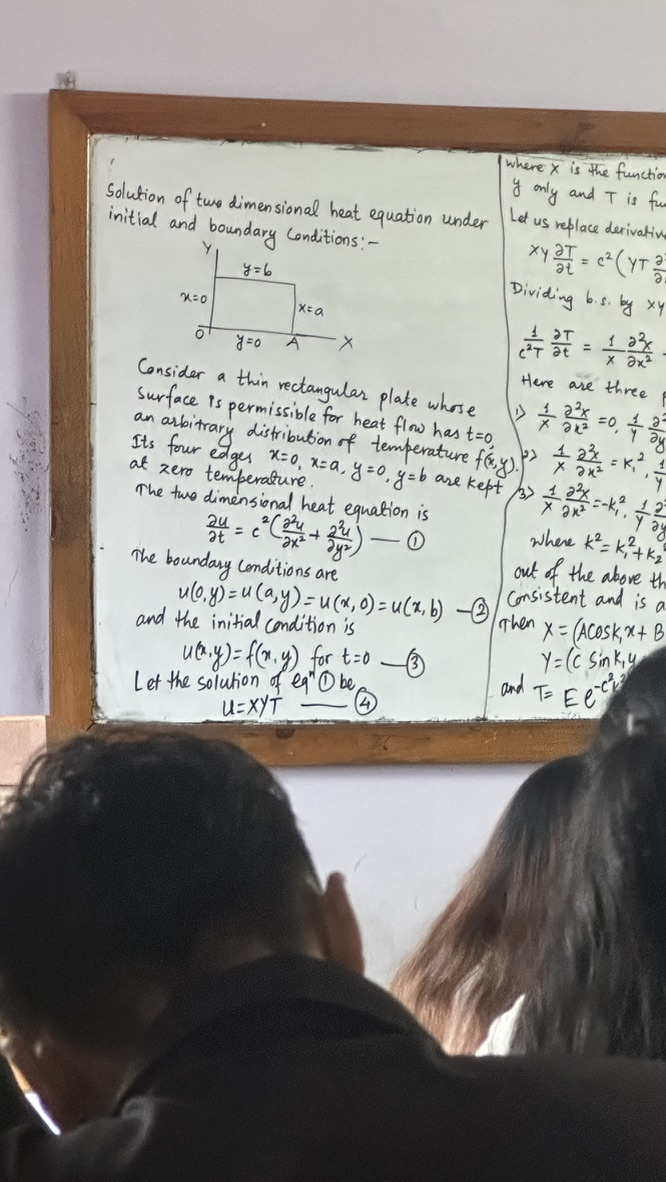 Solution of two dimensional heat equation under
initial and boundary Conditions:-
Y
y=b
x=0
x=a
O
y=0
A
X
Consider a thin rectangular plate whose
surface is permissible for heat flow has t=0,
an arbitrary distribution of temperature f(x,y).
Its four edges x=0, x=a, y=0, y=b are kept
at zero temperature.
The two dimensional heat equation is
∂u/∂t = c²(∂²u/∂x² + ∂²u/∂y²) — ①
The boundary Conditions are
u(0,y)=u(a,y)=u(x,0)=u(x,b) — ②
and the initial condition is
u(x,y)=f(x,y) for t=0 — ③
Let the solution of eqⁿ ① be
u=XYT — ④
where X is the
y only and T is
Let us replace
XY ∂T/∂t = c²(YT
Dividing b.s. by XY
1/c²T ∂T/∂t = 1/X ∂²x/∂x²
Here are three
1> 1/X ∂²x/∂x² = 0, 1/Y
2> 1/X ∂²x/∂x² = K₁²,
3> 1/X ∂²x/∂x² = -K₁², 1/Y
where K² = K₁² + K₂²
out of the above
Consistent and is
Then X = (A cos K₁x + B
Y = (C sin K₁y
and T = E e